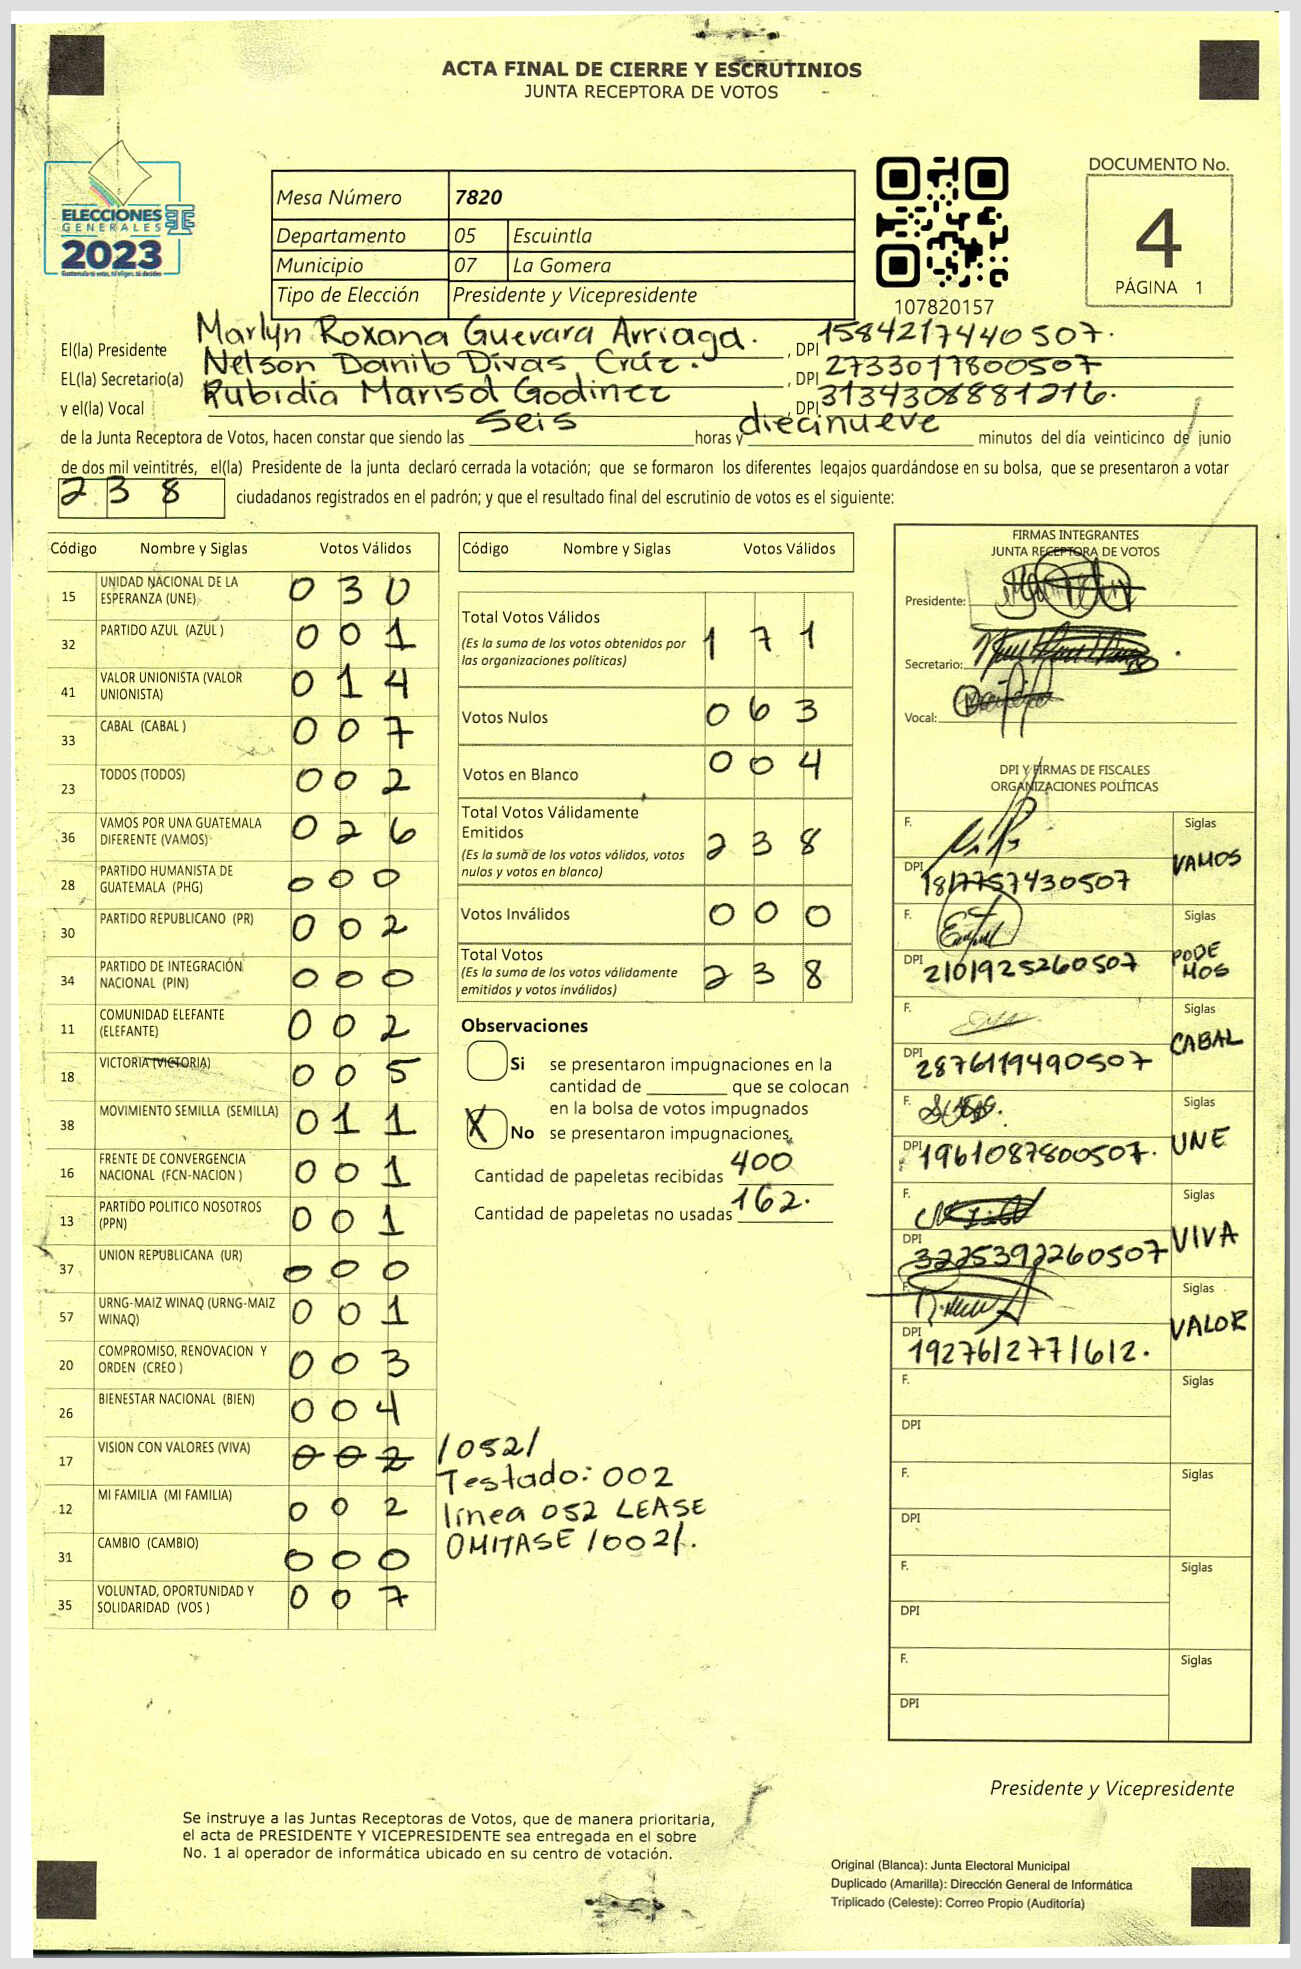 ACTA FINAL DE CIERRE Y ESCRUTINIOS
JUNTA RECEPTORA DE VOTOS
ELECCIONES
GENERALES
2023
Mesa Número 7820
Departamento 05 Escuintla
Municipio 07 La Gomera
Tipo de Elección Presidente y Vicepresidente
107820157
DOCUMENTO No.
4
PÁGINA 1
El(la) Presidente Marlyn Roxana Guevara Arriaga. , DPI 1584217440507.
EL(la) Secretario(a) Nelson Danilo Divas Cruz. , DPI 2733017800507
y el(la) Vocal Rubidia Marisol Godinez , DPI 3134308881216.
de la Junta Receptora de Votos, hacen constar que siendo las seis horas y diecinueve minutos del día veinticinco de junio
de dos mil veintitrés, el(la) Presidente de la junta declaró cerrada la votación; que se formaron los diferentes legajos guardándose en su bolsa, que se presentaron a votar
238 ciudadanos registrados en el padrón; y que el resultado final del escrutinio de votos es el siguiente:
Código Nombre y Siglas Votos Válidos
15 UNIDAD NACIONAL DE LA ESPERANZA (UNE) 030
32 PARTIDO AZUL (AZUL ) 001
41 VALOR UNIONISTA (VALOR UNIONISTA) 014
33 CABAL (CABAL ) 007
23 TODOS (TODOS) 002
36 VAMOS POR UNA GUATEMALA DIFERENTE (VAMOS) 026
28 PARTIDO HUMANISTA DE GUATEMALA (PHG) 000
30 PARTIDO REPUBLICANO (PR) 002
34 PARTIDO DE INTEGRACIÓN NACIONAL (PIN) 000
11 COMUNIDAD ELEFANTE (ELEFANTE) 002
18 VICTORIA (VICTORIA) 005
38 MOVIMIENTO SEMILLA (SEMILLA) 011
16 FRENTE DE CONVERGENCIA NACIONAL (FCN-NACION ) 001
13 PARTIDO POLITICO NOSOTROS (PPN) 001
37 UNION REPUBLICANA (UR) 000
57 URNG-MAIZ WINAQ (URNG-MAIZ WINAQ) 001
20 COMPROMISO, RENOVACION Y ORDEN (CREO ) 003
26 BIENESTAR NACIONAL (BIEN) 004
17 VISION CON VALORES (VIVA) 002 /052/
12 MI FAMILIA (MI FAMILIA) 002
31 CAMBIO (CAMBIO) 000
35 VOLUNTAD, OPORTUNIDAD Y SOLIDARIDAD (VOS ) 007
Testado: 002
línea 052 LEASE
OMITASE /002/.
Código Nombre y Siglas Votos Válidos
Total Votos Válidos 171
(Es la suma de los votos obtenidos por
las organizaciones políticas)
Votos Nulos 063
Votos en Blanco 004
Total Votos Válidamente
Emitidos 238
(Es la suma de los votos válidos, votos
nulos y votos en blanco)
Votos Inválidos 000
Total Votos 238
(Es la suma de los votos válidamente
emitidos y votos inválidos)
Observaciones
Si se presentaron impugnaciones en la
cantidad de ________ que se colocan
en la bolsa de votos impugnados
X No se presentaron impugnaciones,
Cantidad de papeletas recibidas 400
Cantidad de papeletas no usadas 162.
FIRMAS INTEGRANTES
JUNTA RECEPTORA DE VOTOS
Presidente:
Secretario:
Vocal:
DPI Y FIRMAS DE FISCALES
ORGANIZACIONES POLÍTICAS
F. Siglas
DPI 1817757430507 VAMOS
F. Siglas
DPI 2101925260507 PODEMOS
F. Siglas
DPI 2876119490507 CABAL
F. Siglas
DPI 1961087800507. UNE
F. Siglas
DPI 3225392260507 VIVA
F. Siglas
DPI 1927612771612. VALOR
F. Siglas
DPI
F. Siglas
DPI
F. Siglas
DPI
F. Siglas
DPI
Presidente y Vicepresidente
Se instruye a las Juntas Receptoras de Votos, que de manera prioritaria,
el acta de PRESIDENTE Y VICEPRESIDENTE sea entregada en el sobre
No. 1 al operador de informática ubicado en su centro de votación.
Original (Blanca): Junta Electoral Municipal
Duplicado (Amarilla): Dirección General de Informática
Triplicado (Celeste): Correo Propio (Auditoría)